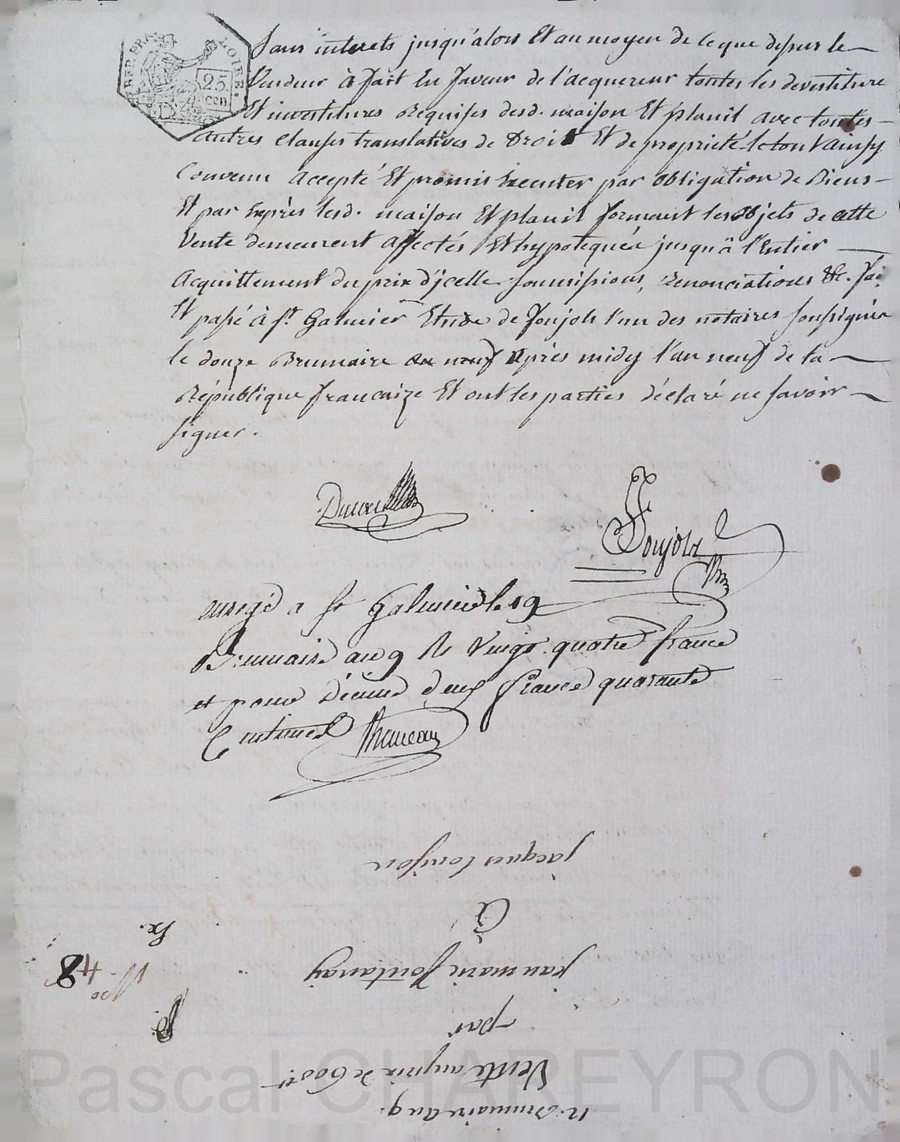 REP. FRA. LOIRE
25.
cen
Sans interets jusqu'alors Et au moyen de ceque dessus le
Vendeur à fait En faveur de l'acquereur toutes les devestiture
Et investitures Requises desd. maison Et planil avec toutes
autres clauses translatives de Droit Et de propriété letout ainsy
Convenu accepté Et promis Executer par obligation de Biens
Et par Exprès lesd. maison Et planil formant les objets de cette
Vente demeurent affectés Et hypotequée jusqu'à l'Entier
acquittement du prix d'jcelle soumissions, Renonciations &c. fai
Et passé à st. Galmier Etude de Joujols l'un des notaires soussignés
le douze Brumaire après midy l'an neuf de la
République francaize Et ont les parties déclaré ne savoir
signer.
Joujols
enregé a st Galmier le 19
Brumaire an 9 R vingt quatre francs
et pour Décime deux francs quarante
Centimes
12. Brumaire an 9.
Vente au prix de 600
par
jean marie fontanay
à
jacques
48
Pascal CHAREYRON